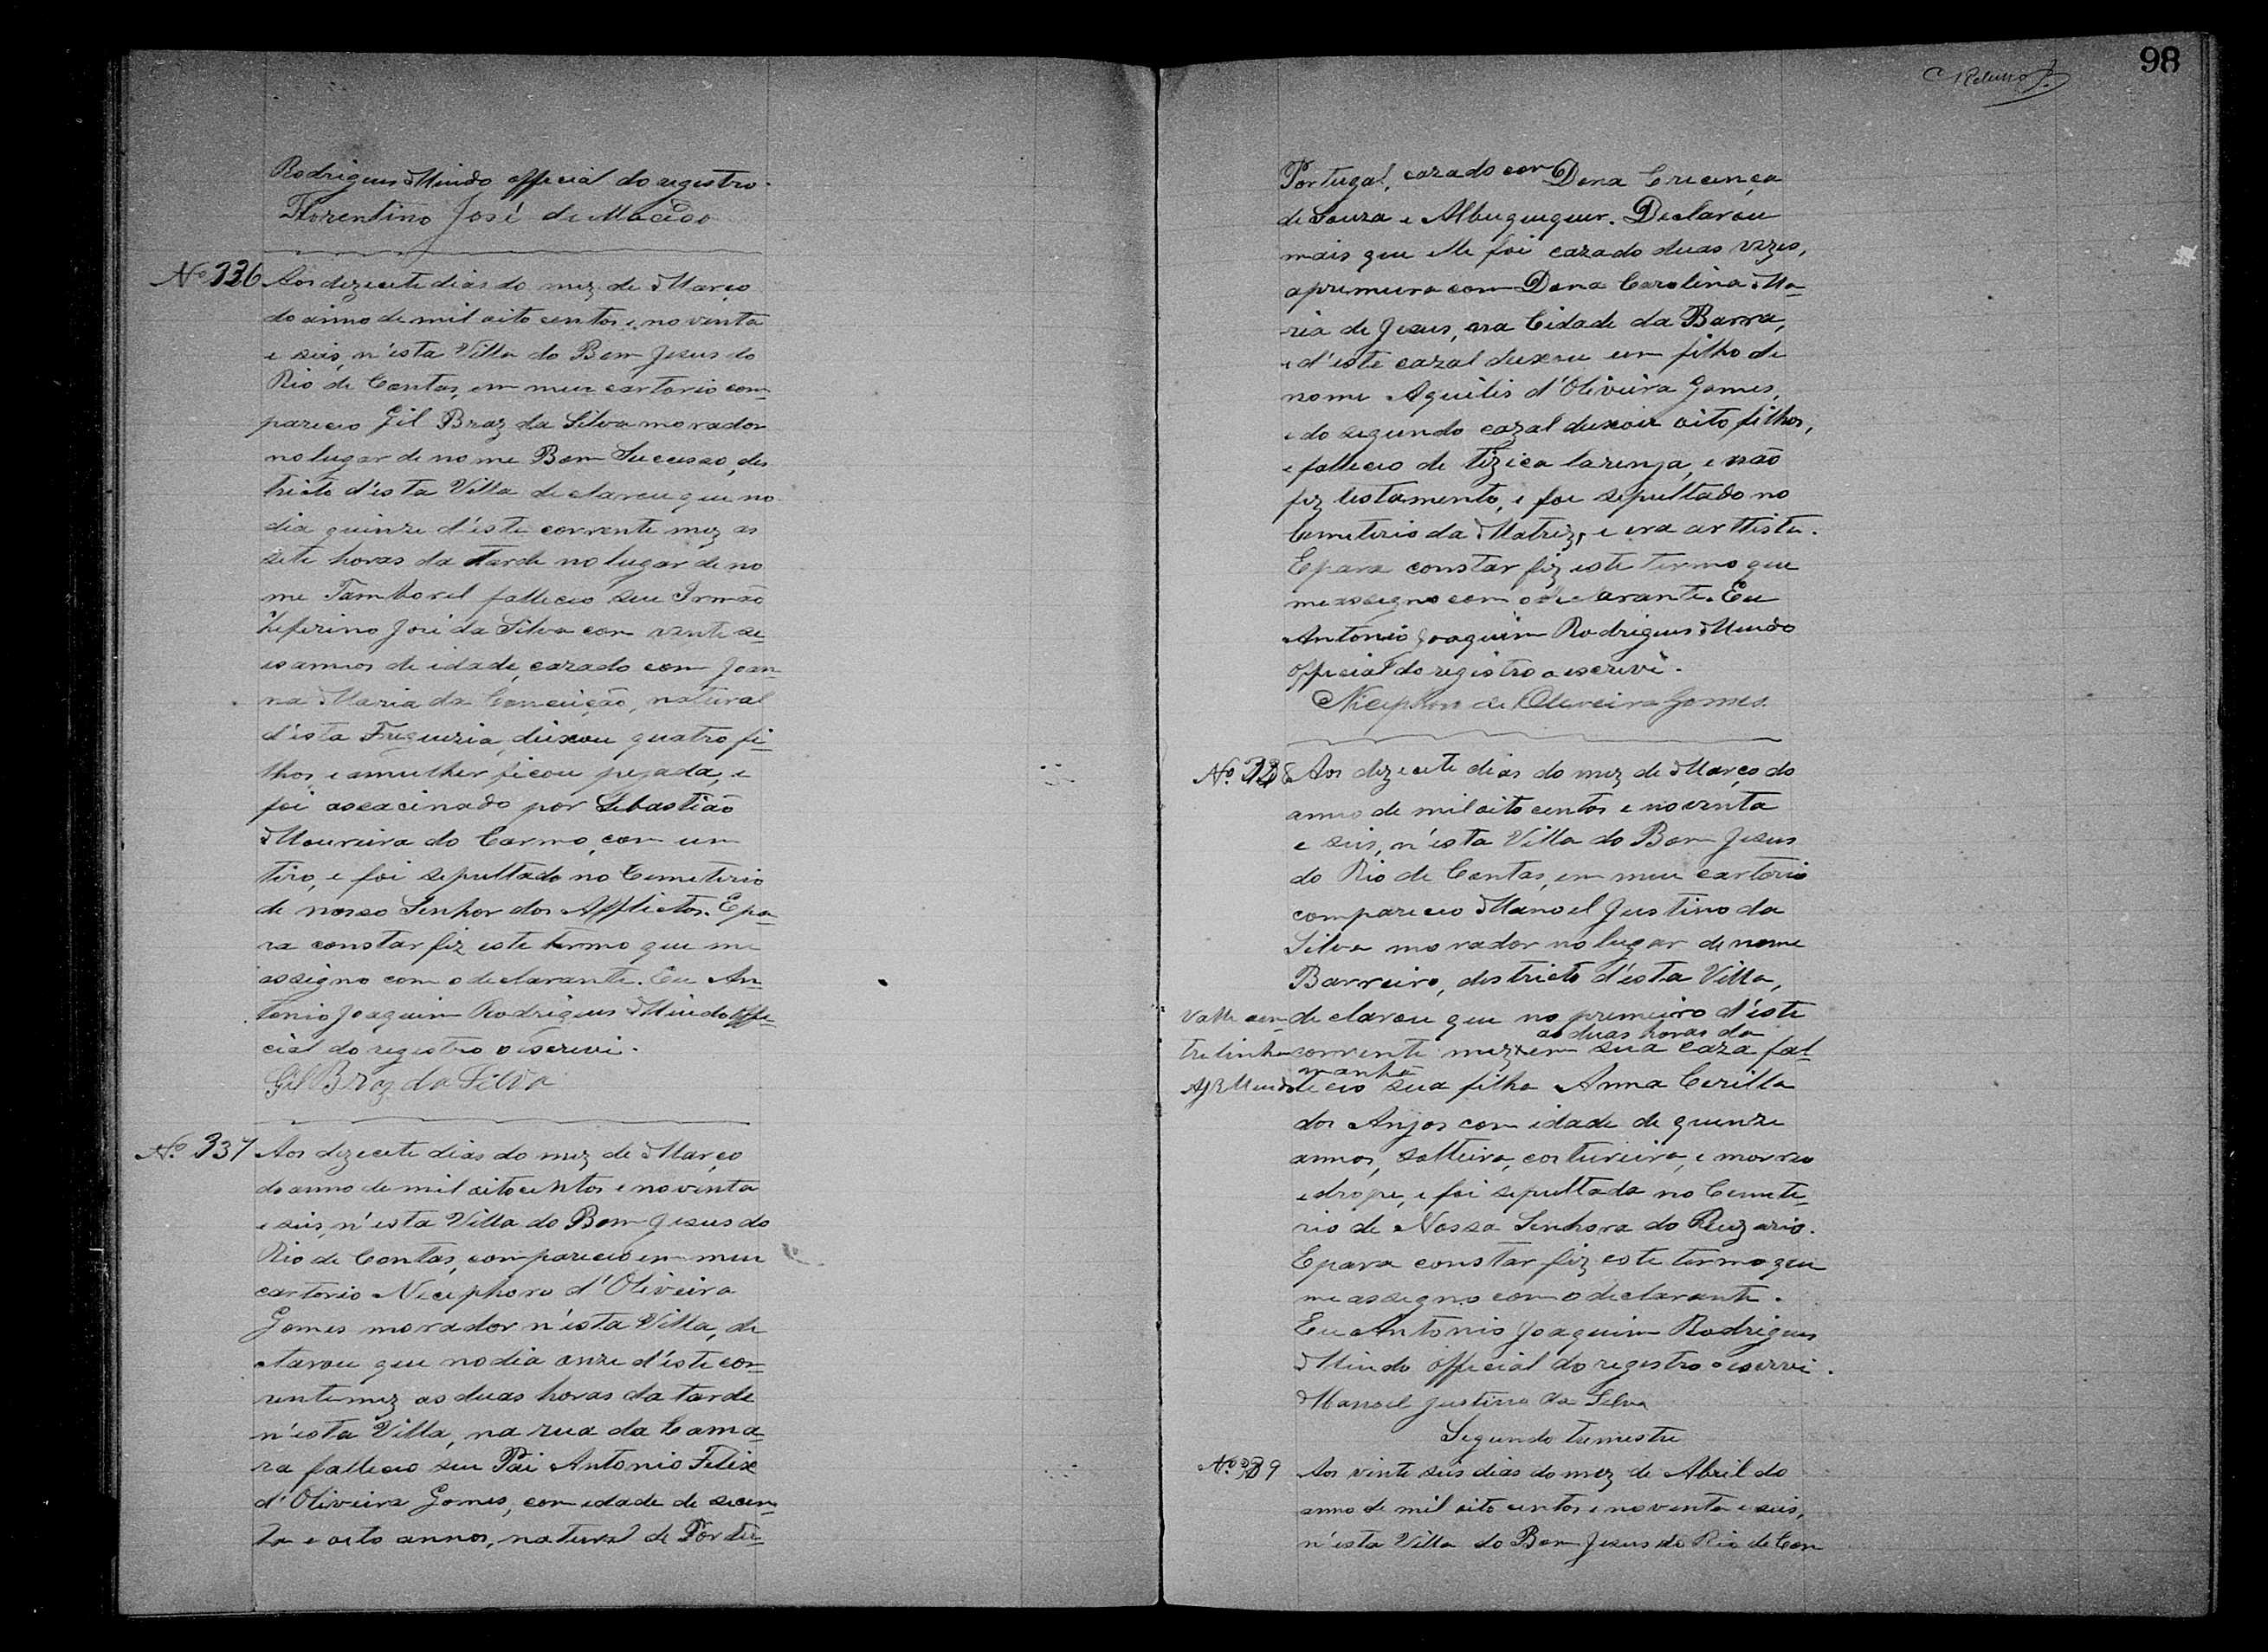 Rodrigues Mindo official do registro.
Florentino José de Macêdo
Nº 336 Aos dezecete dias do mez de Março
do anno de mil oito centos e noventa
e seis, n'esta Villa do Bom Jesus do
Rio de Contas, em meu cartorio com-
pareceo Gil Braz da Silva morador
no lugar de nome Bom Sucesso, des
tricto d'esta Villa declarou que no
dia quinze d'este corrente mez as
sete horas da tarde no lugar de no
me Tamboril falleceo seu Irmão
Zeferino José da Silva com vinte se-
is annos de idade, cazado com Joan-
na Maria da Conceição, natural
d'esta Freguezia, deixou quatro fi-
lhos, e a mulher ficou pejada, e
foi asacinado por Sebastião
Moureira do Carmo, com um
tiro, e foi sepultado no Cemeterio
de nosso Senhor dos Afflictos. E pa-
ra constar fiz este termo que me
assigno com o declarante. Eu An-
tonio Joaquim Rodrigues Mindo offi-
cial do registro o escrevi.
Gil Braz da Silva
Nº 337 Aos dezecete dias do mez de Março
do anno de mil oitocentos e noventa
e seis, n'esta Villa do Bom Jesus do
Rio de Contas, compareceo em meu
cartorio Nicephoro d'Oliveira
Gomes morador n'esta Villa, de
clarou que no dia onze d'este cor-
rente mez as duas horas da tarde
n'esta Villa, na rua da Cama-
ra falleceo seu Pai Antonio Felix
d'Oliveira Gomes, com idade de secen-
ta e oito annos, natural de Portu-
98
Portugal, cazado com Dona Crecença
de Souza e Albuquerque. Declarou
mais que elle foi cazado duas vezes,
a premeira com Dona Carolina Ma-
ria de Jesus, na Cidade da Barra,
e d'este cazal deixou um filho de
nome Aquilis d'Oliveira Gomes,
e do segundo cazal deixou oito filhos,
e falleceo de tizica larenja, e não
fez testamento, e foi sepultado no
Cemeterio da Matriz, e era arttista.
E para constar fiz este termo que
me assigno com o declarante. Eu
Antonio Joaquim Rodrigues Mindo
official do registro o escrevi.
Nicephoro de Oliveira Gomes.
Nº 338 Aos dezecete dias do mez de Março do
anno de mil oito centos e noventa
e seis, n'esta Villa do Bom Jesus
do Rio de Contas, em meu cartorio
compareceo Manoel Justino da
Silva morador no lugar de nome
Barreiro, destricto d'esta Villa,
Valle a en- declarou que no premeiro d'este
as duas horas da
trelinha corrente mez x em sua caza fal-
manhã
AJRMindo leceo sua filha Anna Cerilla
dos Anjos com idade de quinze
annos, solteira, costureira, e morreo
edrope, e foi sepultada no Cemete-
rio de Nossa Senhora do Ruzario.
E para constar fiz este termo que
me assegno com o declarante.
Eu Antonio Joaquim Rodrigues
Mindo official do registro o escrevi.
Manoel Justino da Silva
Segundo trimestre
Nº 339 Aos vinte seis dias do mez de Abril do
anno de mil oito centos e noventa e seis,
n'esta Villa do Bom Jesus do Rio de Con